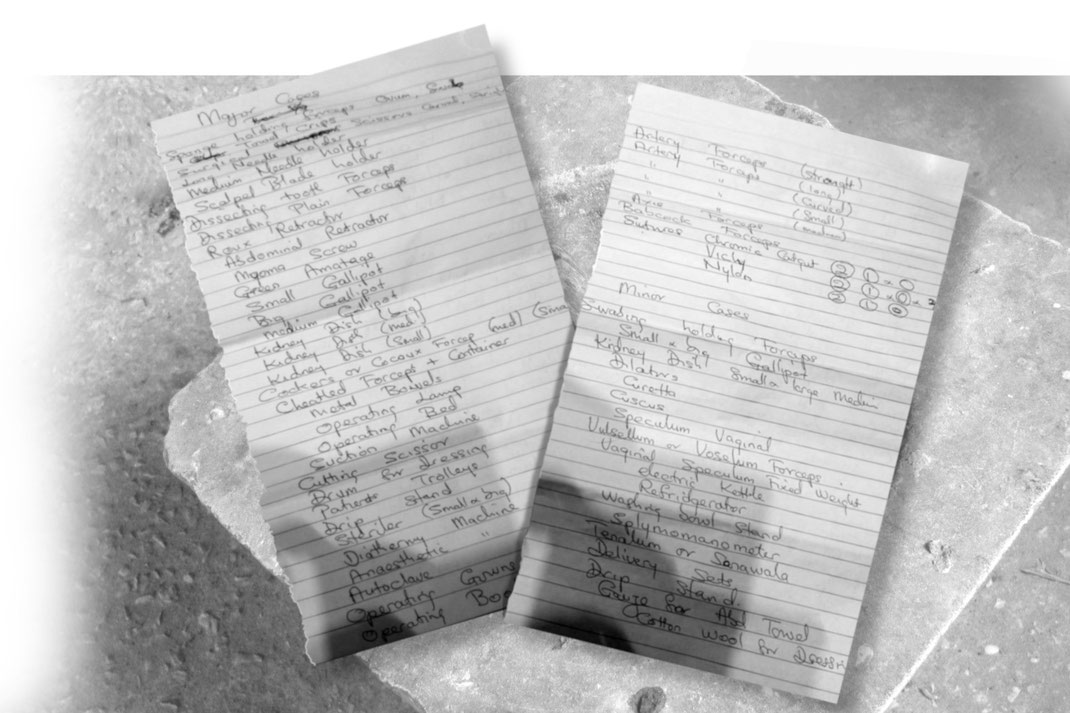 Major Cases
Sponge holding Forceps Ovum,
Surgi Scissors Curved,
Long Needle holder
Medium Needle holder
Scalpel Blade holder
Dissecting tooth Forceps
Dissecting Plain Forceps
Roux Retractor
Abdominal Retractor
Screw
Green Amatage
Small Gallipot
Big Gallipot
Medium Gallipot
Kidney Dish (big)
Kidney Dish (med)
Kidney Dish (small)
Cockers or Cocaux Forcep (med) (small
Cheatled Forceps + Container
Metal Bowels
Operating Lamp
Operating Bed
Suction Machine
Cutting Scissor
Drum for Dressing
Patients Trolleys
Drip Stand
Steriler (Small & big)
Diathermy Machine
Anaesthetic "
Autoclave
Operating Gowns
Operating
Artery Forceps (straight)
Artery Forceps (long)
" " (Curved)
" " (Small)
" " (medium)
Axis Forceps
Babcock Forceps
Sutures Chromic Catgut 2 1 x 0
Vicly 2 1 x 0 x 2
Nylon 2 1 0
Minor Cases
Swabing holding Forceps
Small & Big Gallipot
Kidney Dish Small & large Medium
Dilators
Curetta
Cuscus
Speculum Vaginal
Vulsellum or Voselum Forceps
Vaginal Speculum Fixed Weight
electric Kettle
Refridgerator
Washing bowl Stand
Splymomanometer
Tenalum or Sonawala
Delivery Sets
Drip Stand.
Gauze for Abd Towel
Cotton Wool for Dressi